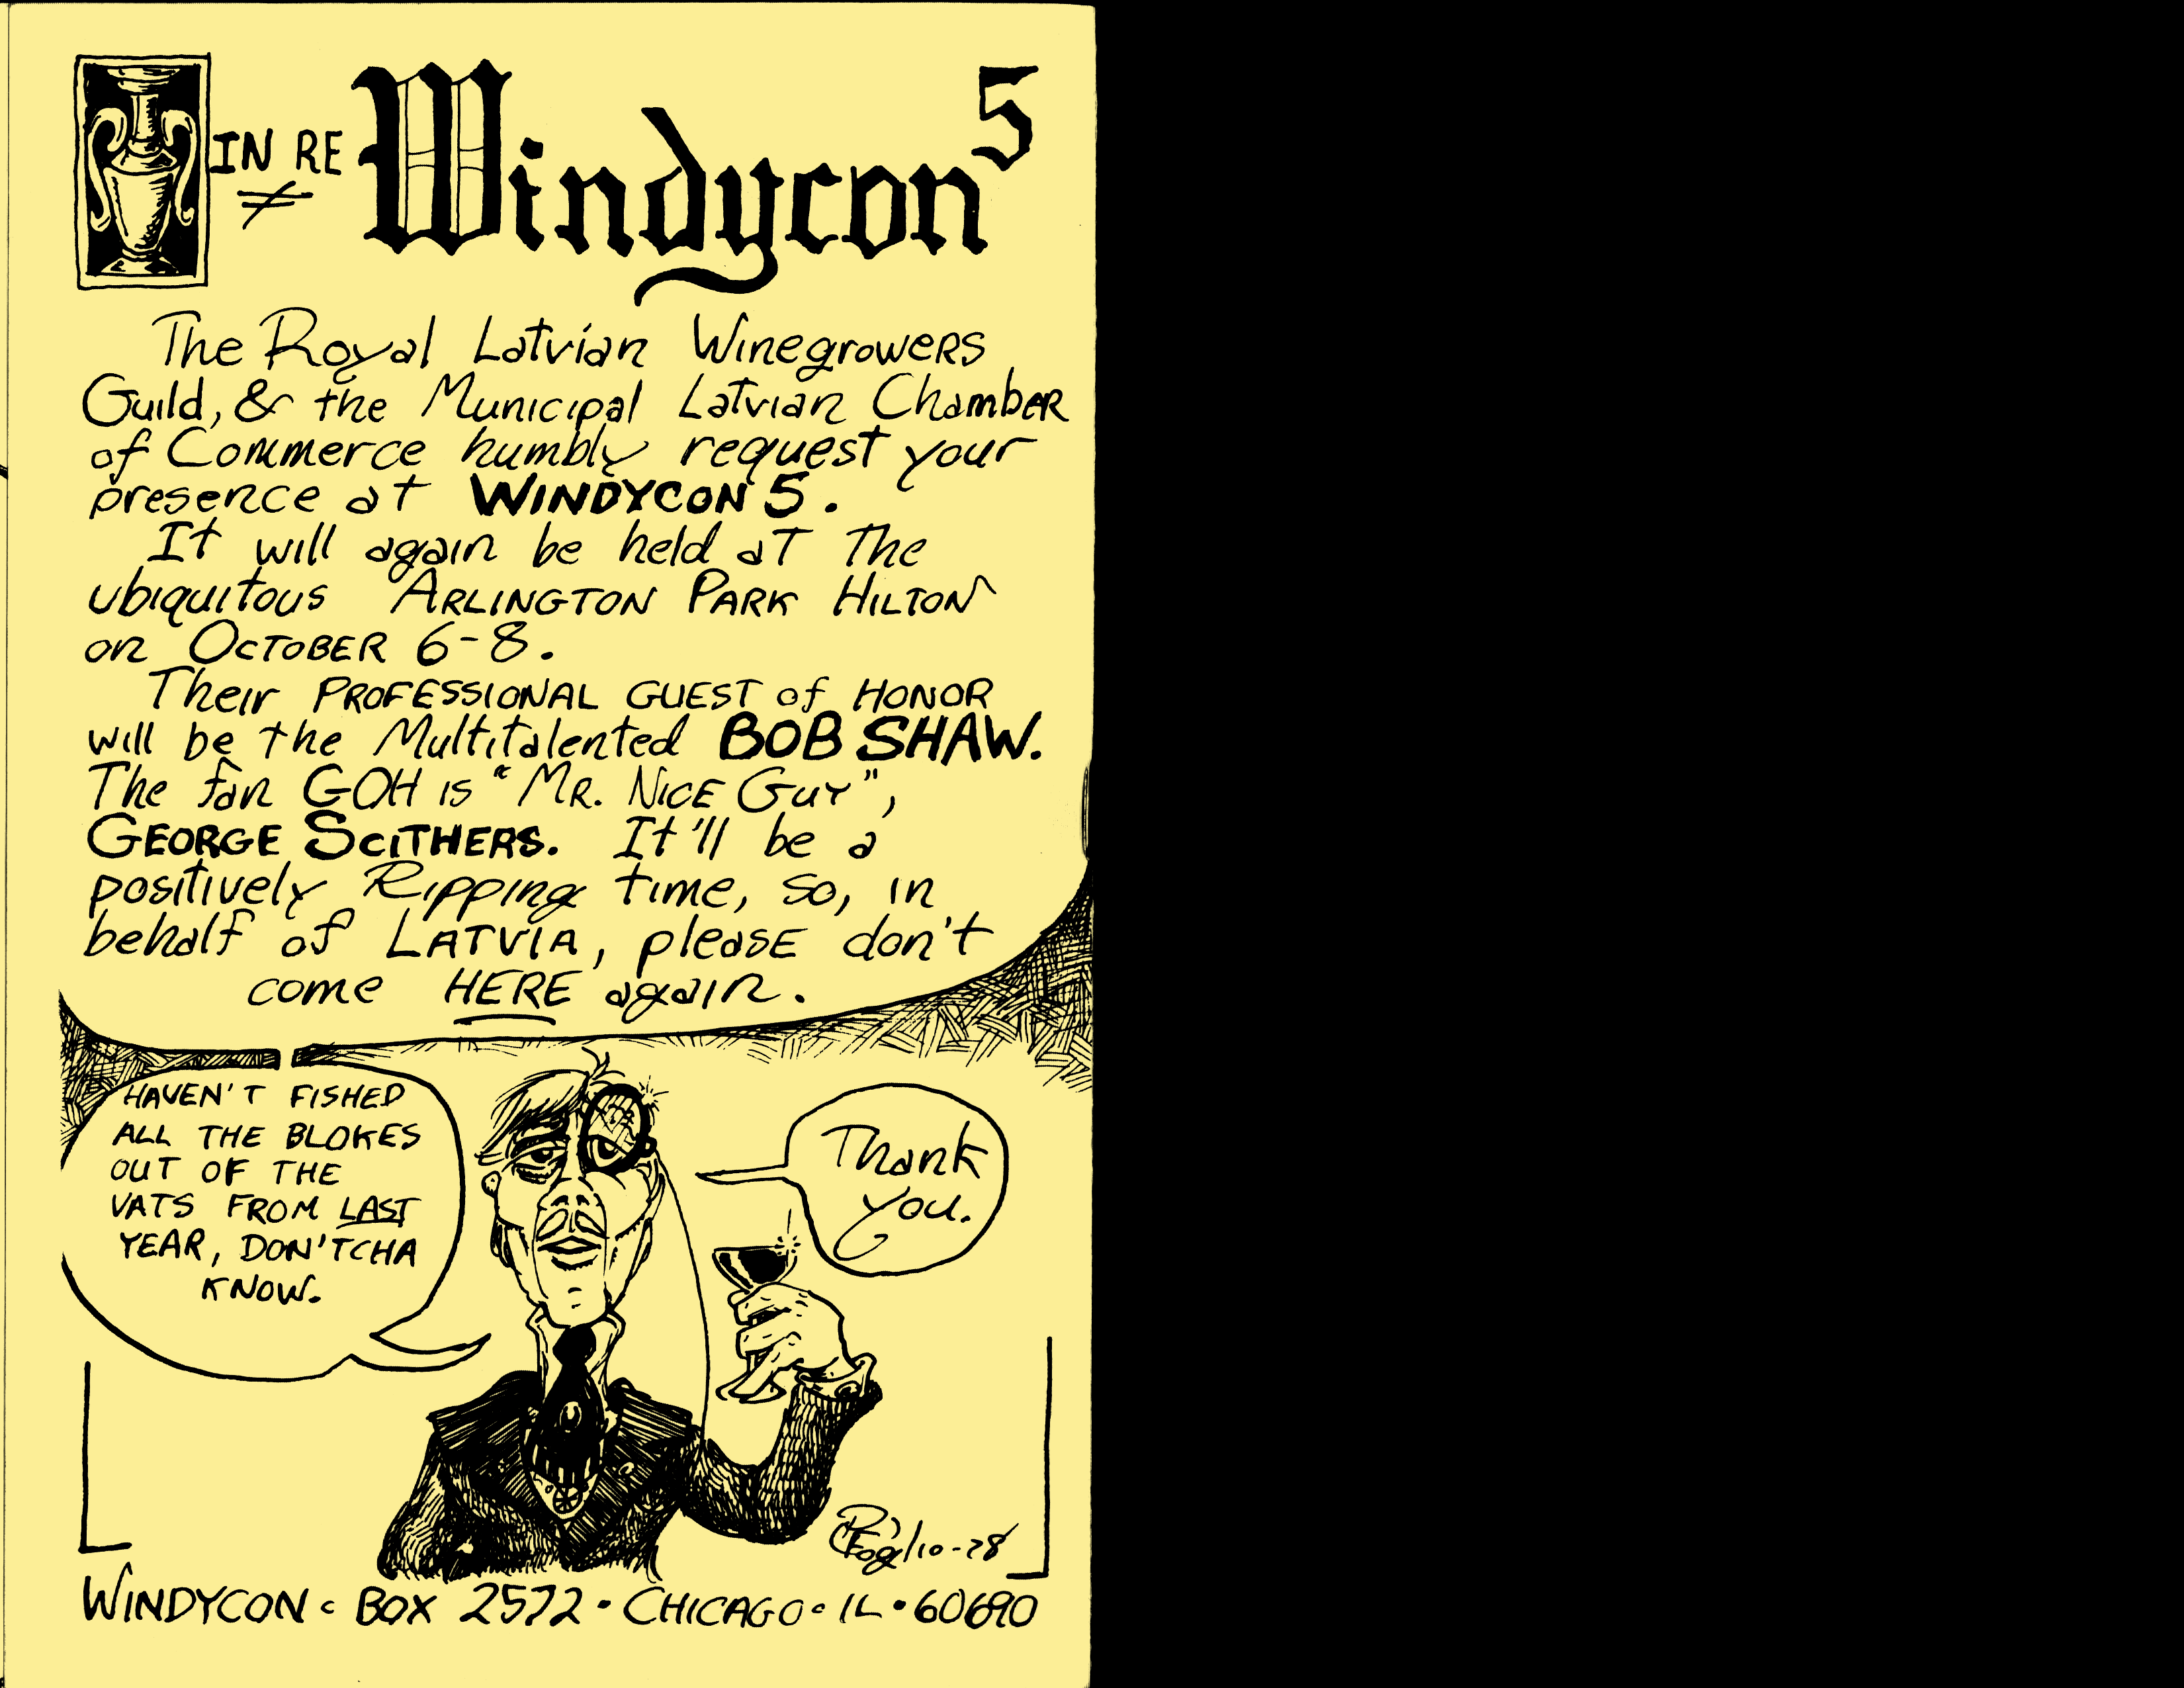 IN RE
Windycon 5
The Royal Latvian Winegrowers
Guild, & the Municipal Latvian Chamber
of Commerce humbly request your
presence at WINDYCON 5.
It will again be held at the
ubiquitous ARLINGTON PARK HILTON
on OCTOBER 6-8.
Their PROFESSIONAL GUEST of HONOR
will be the Multitalented BOB SHAW.
The fan GOH is "MR. NICE GUY",
GEORGE SCITHERS. It'll be a
positively Ripping time, so, in
behalf of LATVIA, please don't
come HERE again.
HAVEN'T FISHED
ALL THE BLOKES
OUT OF THE
VATS FROM LAST
YEAR, DON'TCHA
KNOW.
Thank
you.
Foglio-78
WINDYCON • BOX 2572 • CHICAGO • IL • 60690